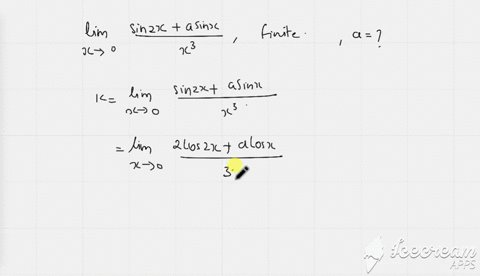 lim x→0 (sin2x + asinx)/x³ , finite. , a = ?
K = lim x→0 (sin2x + asinx)/x³
= lim x→0 (2cos2x + acosx)/3
Icecream
APPS